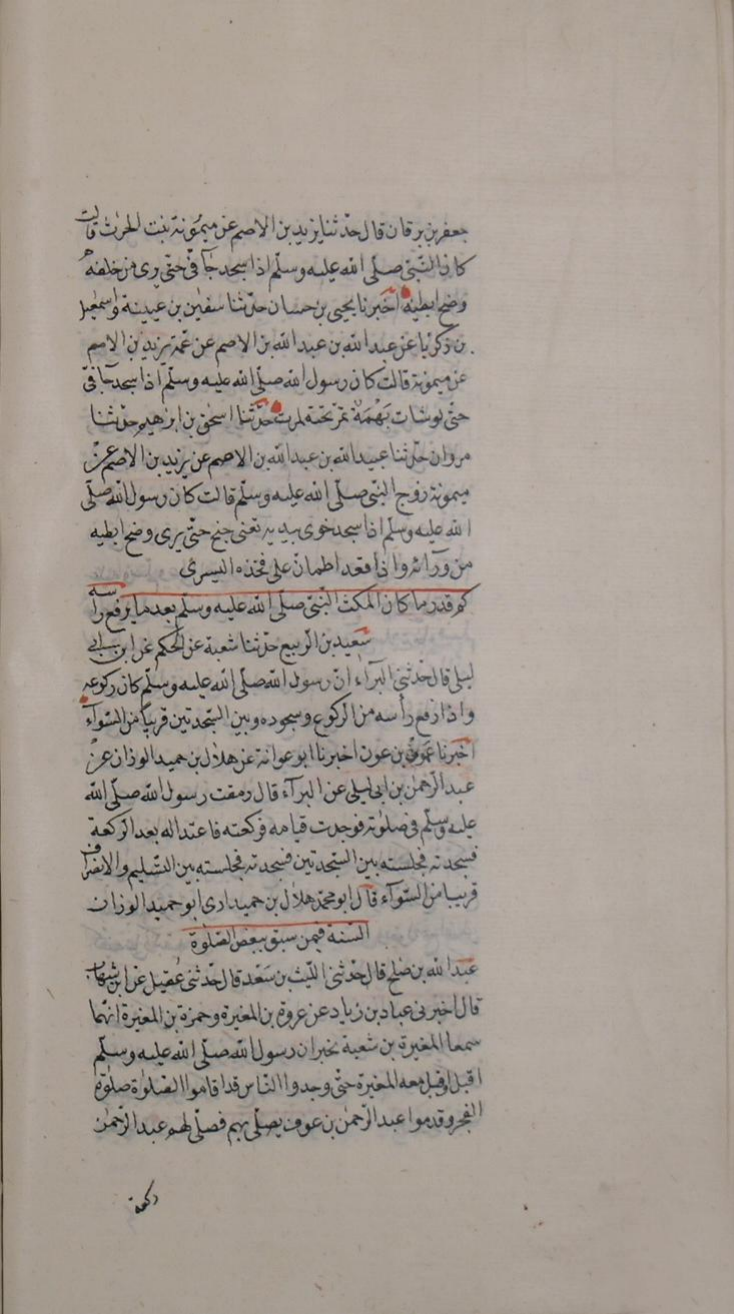 جعفر بن برقان قال حدثنا يزيد بن الاصم عن ميمونة بنت الحرث قالت
كان النبي صلى الله عليه وسلم اذا سجد جافى حتى يرى من خلفه
وضح ابطيه اخبرنا يحيى بن حسان حدثنا سفين بن عيينة واسمعيل
بن زكريا عن عبد الله بن عبد الله بن الاصم عن عمه يزيد بن الاصم
عن ميمونة قالت كان رسول الله صلى الله عليه وسلم اذا سجد جافى
حتى لو شات بهمة تمر تحته لمرت حدثنا اسحق بن ابرهيم حدثنا
مروان حدثنا عبيد الله بن عبد الله بن الاصم عن يزيد بن الاصم عن
ميمونة زوج النبي صلى الله عليه وسلم قالت كان رسول الله صلى
الله عليه وسلم اذا سجد خوى بيديه تعنى جنح حتى يرى وضح ابطيه
من ورآئه واذا قعد اطمان على فخذه اليسرى
كم قدر ما كان المكث النبي صلى الله عليه وسلم بعد ما يرفع راسه
سعيد بن الربيع حدثنا شعبة عن الحكم عن ابن ابي
ليلى قال حدثني البرآء ان رسول الله صلى الله عليه وسلم كان ركوعه
واذا رفع رأسه من الركوع وسجوده وبين السجدتين قريبا من السوآء
اخبرنا عمرو بن عون اخبرنا ابو عوانة عن هلال بن حميد الوزان عن
عبد الرحمن بن ابي ليلى عن البرآء قال رمقت رسول الله صلى الله
عليه وسلم في صلوته فوجدت قيامه فركعته فاعتداله بعد الركعة
فسجدته فجلسته بين السجدتين فسجدته فجلسته بين التسليم والانصراف
قريبا من السوآء قال ابو محمد هلال بن حميد ارى ابو حميد الوزان
السنة فيمن سبق ببعض الصلوة
عبد الله بن صلح قال حدثني الليث بن سعد قال حدثني عقيل عن ابن شهاب
قال اخبرني عباد بن زياد عن عروة بن المغيرة وحمزة بن المغيرة انهما
سمعا المغيرة بن شعبة يخبر ان رسول الله صلى الله عليه وسلم
اقبل اوقبل معه المغيرة حتى وجدوا الناس قد اقاموا الصلوة صلوة
الفجر وقدموا عبد الرحمن بن عوف يصلى بهم فصلى لهم عبد الرحمن
ركعة